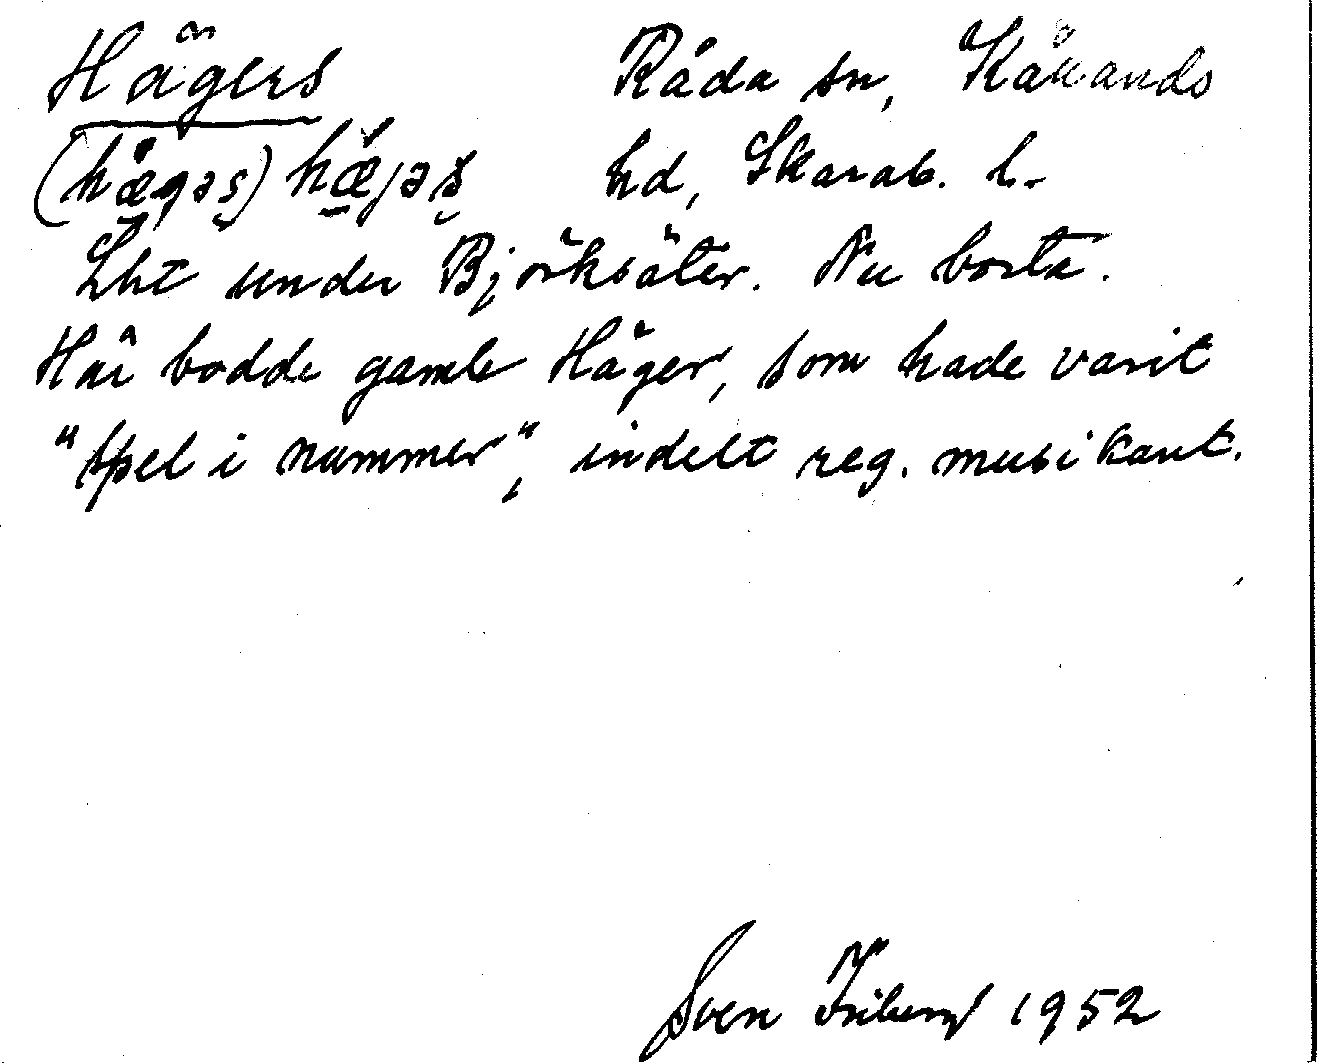 Hägers Råda sn, Kållands
(hægəs) hæjəs hd, Skarab. l.
Lht under Björksäter. Nu borta.
Här bodde gamle Häger, som hade varit
"spel i nummer", indelt reg. musikant.
Sven Friberg 1952